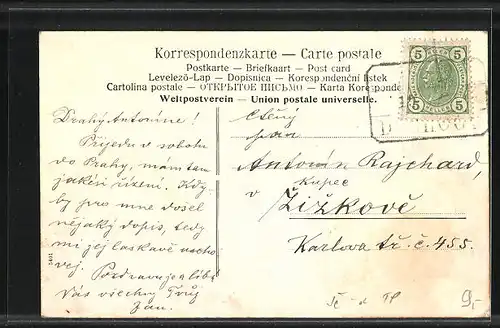 Korrespondenzkarte — Carte postale
Postkarte — Briefkaart — Post card
Levelező-Lap — Dopisnica — Korespondenční lístek
Cartolina postale — ОТКРЫТОЕ ПИСЬМО — Karta Koresponde
Weltpostverein — Union postale universelle.
5 5
5 5
Drahý Antoníne!
Přijedu v sobotu
do Prahy, mám tam
jakési řízení. Kdy-
by pro mne došel
nějaký dopis, tedy
mi jej laskavě uscho-
vej. Pozdravuje a líbá
Vás všechny Tvůj
Jan.
Ctěný
pan
Antonín Rajchard,
kupec
v Žižkově
Karlova tř. č. 455.
9,-